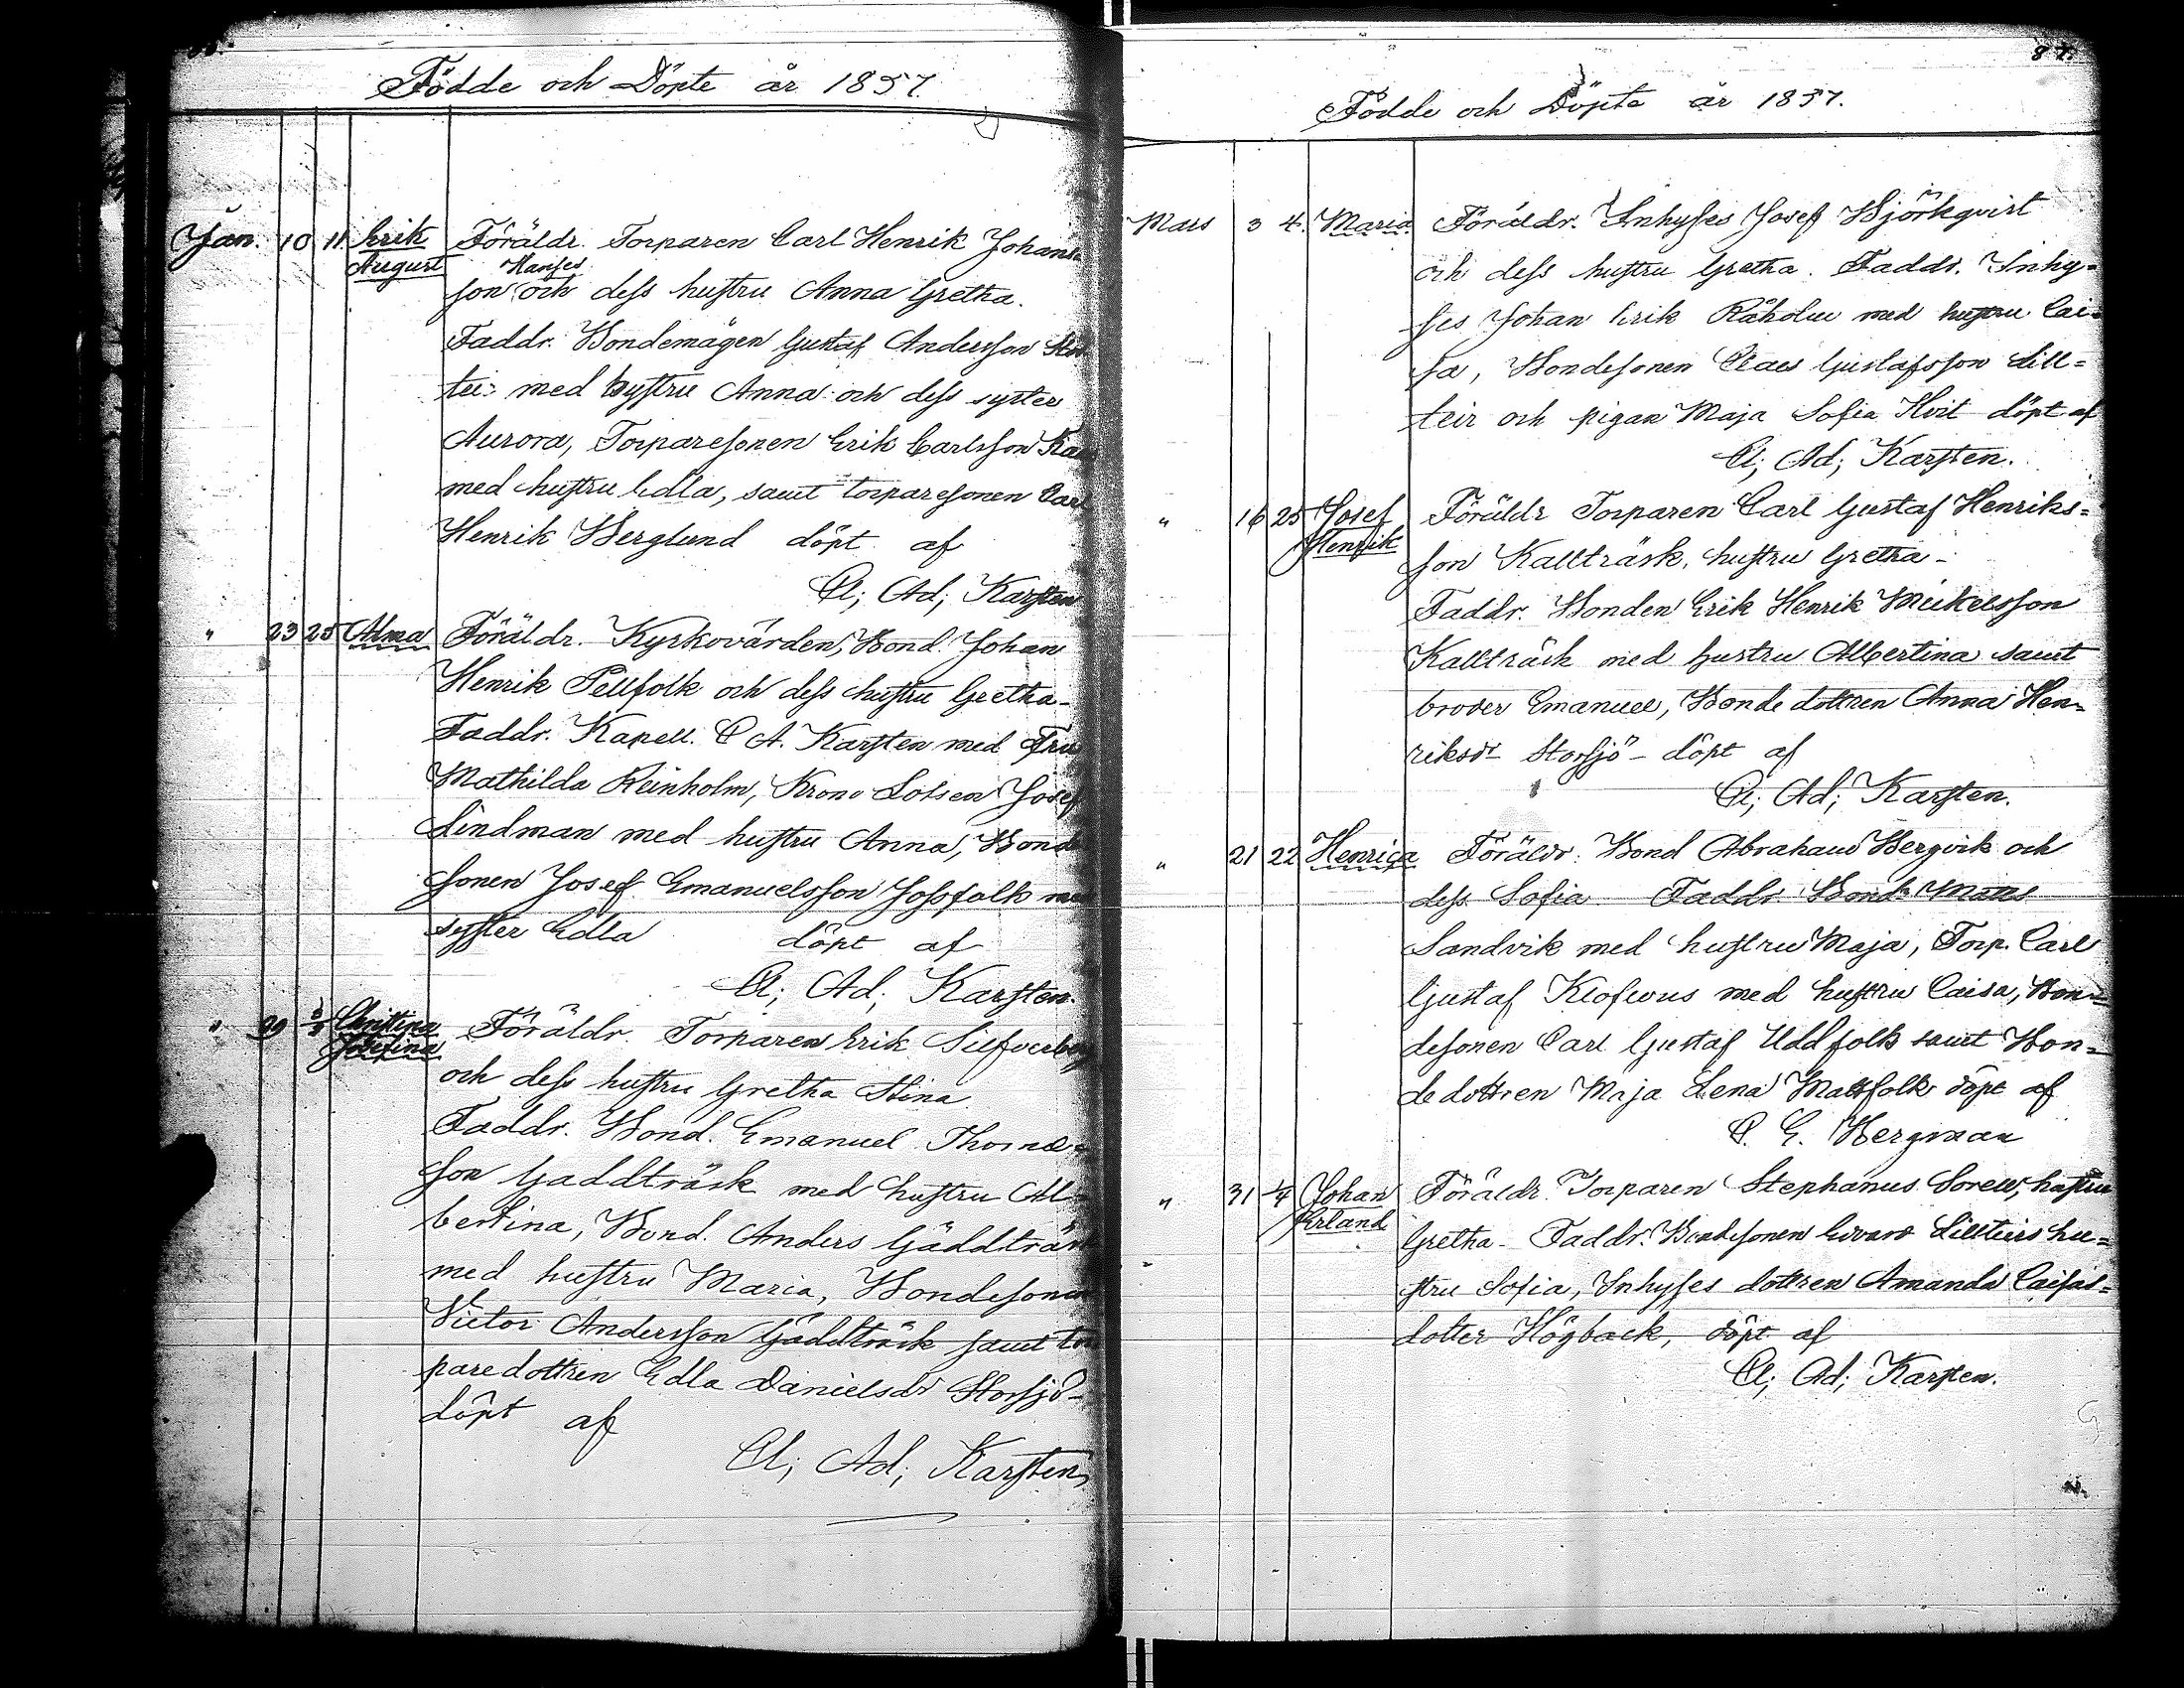 Födde och Döpte år 1857.
Jan. 10 11 Erik Föräldr. Torparen Carl Henrik Johans
August Hanses
son och dess hustru Anna Gretha.
Faddr. Bondemågen Gustaf Andersson
tei: med hustru Anna och dess syster
Aurora, Torparesonen Erik Carlsson
med hustru Edla, samt torparesonen Carl
Henrik Berglund döpt af
Cl; Ad; Karsten
" 23 25 Alma Föräldr. Kyrkovärden, Bond. Johan
Henrik Pellfolk och dess hustru Gretha-
Faddr. Kapell. C A. Karsten med Fru
Mathilda Reinholm, Krono Lotsen Josef
Lindman med hustru Anna, Bonde
sonen Josef Emanuelsson Jossfolk med
syster Edla döpt af
Cl; Ad; Karsten.
" 29 Christina Föräldr. Torparen Erik Silfverberg
Josefina
och dess hustru Gretha Stina
Faddr. Bond. Emanuel Thomas=
son Gäddträsk med hustru Al=
bertina, Bond. Anders Gäddträsk
med hustru Maria, Bondesonen
Victor Andersson Gäddträsk samt tor
paredottren Edla Danielsdr Storsjö-
döpt af
Cl; Ad; Karsten
87.
Födde och Döpte år 1857.
Mars 3 4. Maria Föräldr. Inhyses Josef Björkqvist
och dess hustru Gretha. Faddr. Inhy=
ses Johan Erik Råholm med hustru Cai=
sa, Bondesonen Claes Gustafsson Lill=
teir och pigan Maja Sofia Hvit döpt af
Cl; Ad; Karsten.
" 16 25 Josef Föräldr Torparen Carl Gustaf Henriks=
Henrik
son Kallträsk, hustru Gretha-
Faddr. Bonden Erik Henrik Meikelsson
Kallträsk med hustru Albertina samt
broder Emanuel, Bonde dottren Anna Hen=
riksdr Storsjö- döpt af
Cl; Ad; Karsten.
" 21 22 Henrica Föräldr. Bond Abraham Bergvik och
dess Sofia Faddr. Bond. Matts
Sandvik med hustru Maja, Torp. Carl
Gustaf Klofwus med hustru Caisa, Bon=
desonen Carl Gustaf Uddfolk samt Bon=
dedottren Maja Lena Mattfolk döpt af
C. G. Bergman
" 31 1/4 Johan Föräldr. Torparen Stephanus Sorell, hustru
Erland
Gretha- Faddr. Bondesonen Edvard Lillteirs hu=
stru Sofia, Inhyses dottren Amanda Caisas=
dotter Högback, döpt af
Cl; Ad; Karsten.